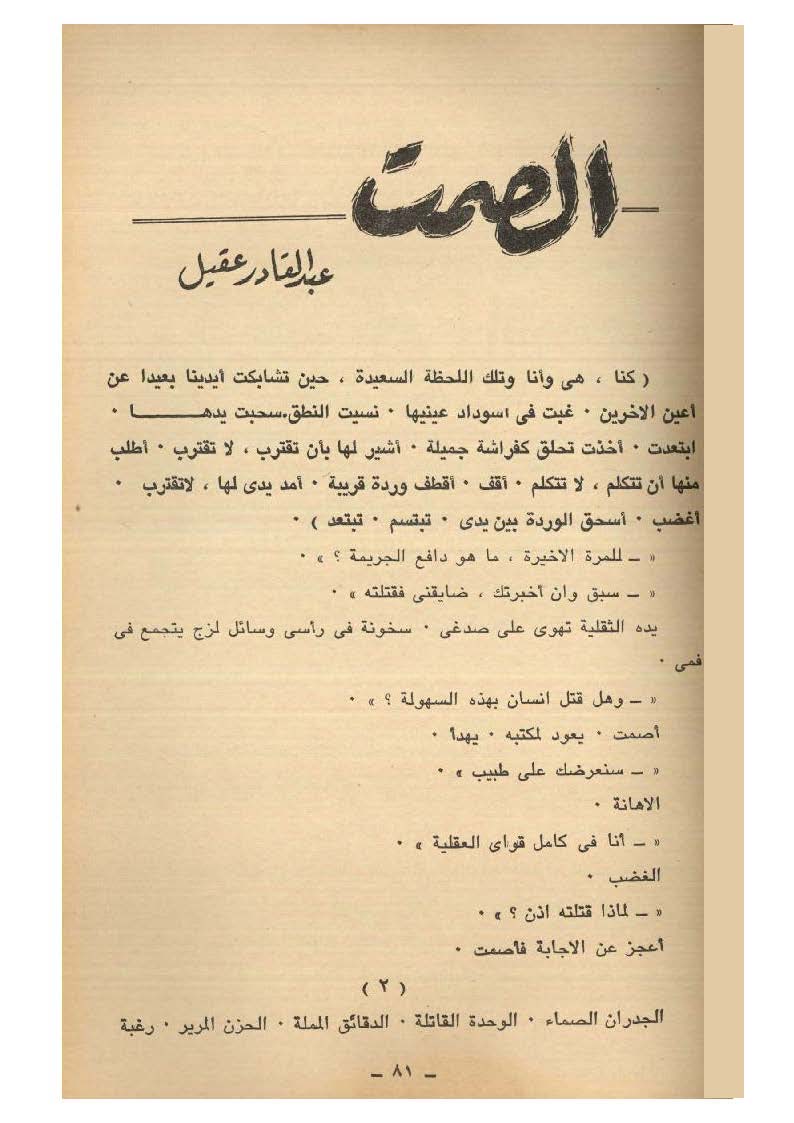 الصمت
عبدالقادر عقيل
( كنا ، هى وأنا وتلك اللحظة السعيدة ، حين تشابكت أيدينا بعيدا عن
أعين الاخرين ٠ غبت فى اسوداد عينيها ٠ نسيت النطق.سحبت يدهـــــــــا ٠
ابتعدت ٠ أخذت تحلق كفراشة جميلة ٠ أشير لها بأن تقترب ، لا تقترب ٠ أطلب
منها أن تتكلم ، لا تتكلم ٠ أقف ٠ أقطف وردة قريبة ٠ أمد يدى لها ، لاتقترب ٠
أغضب ٠ أسحق الوردة بين يدى ٠ تبتسم ٠ تبتعد ) ٠
« ـ للمرة الاخيرة ، ما هو دافع الجريمة ؟ » ٠
« ـ سبق وان أخبرتك ، ضايقنى فقتلته » ٠
يده الثقلية تهوى على صدغى ٠ سخونة فى رأسى وسائل لزج يتجمع فى
فمى ٠
« ـ وهل قتل انسان بهذه السهولة ؟ » ٠
أصمت ٠ يعود لمكتبه ٠ يهدأ ٠
« ـ سنعرضك على طبيب » ٠
الاهانة ٠
« ـ أنا فى كامل قواى العقلية » ٠
الغضب ٠
« ـ لماذا قتلته اذن ؟ » ٠
أعجز عن الاجابة فأصمت ٠
( ٢ )
الجدران الصماء ٠ الوحدة القاتلة ٠ الدقائق المملة ٠ الحزن المرير ٠ رغبة
ـ ٨١ ـ